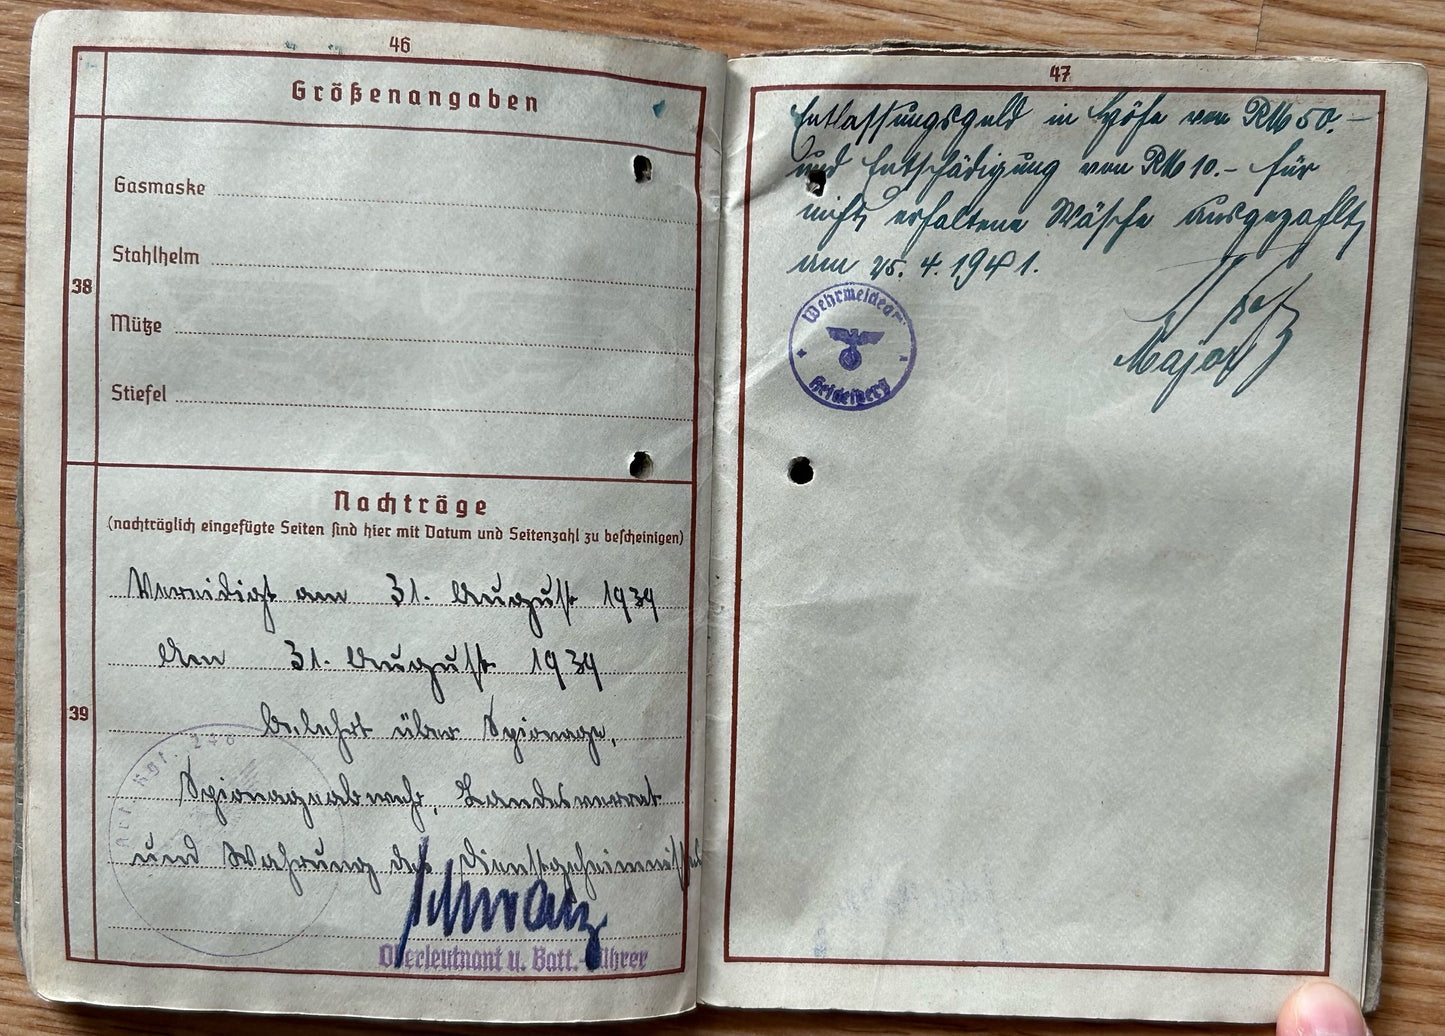 46
Größenangaben
38
Gasmaske
Stahlhelm
Mütze
Stiefel
39
Nachträge
(nachträglich eingefügte Seiten sind hier mit Datum und Seitenzahl zu bescheinigen)
Vereidigt am 31. August 1939
Am 31. August 1939
belehrt über Spionage,
Spionageabwehr, Landesverrat
und Wahrung des Dienstgeheimnisses
Art. Rgt. 248
Schwarz
Oberleutnant u. Batt.-Führer
47
Entlassungsgeld in Höhe von RM 50.-
und Entschädigung von RM 10.- für
nicht erhaltene Wäsche ausgezahlt
am 25. 4. 1941.
Wehrmeldeamt
Heidelberg
Major